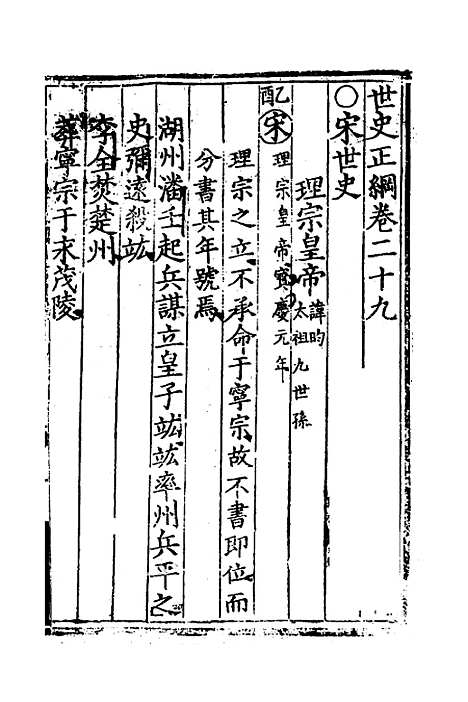 世史正綱卷二十九
○宋世史
理宗皇帝 諱昀 太祖九世孫
乙酉 宋 理宗皇帝寶慶元年
理宗之立不承命于寧宗故不書即位而
分書其年號焉
湖州潘壬起兵謀立皇子竑竑率州兵平之
史彌遠殺竑
李全焚楚州
葬寧宗于永茂陵